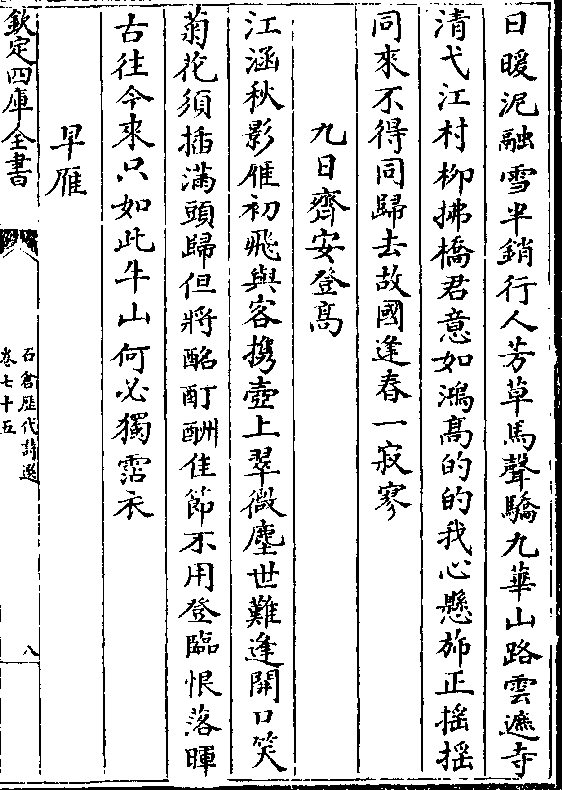 日暖泥融雪半銷行人芳草馬聲驕九華山路雲遮寺
清弋江村柳拂橋君意如鴻髙的的我心懸斾正揺揺
同來不得同歸去故國逢春一寂寥
九日齊安登髙
江涵秋影雁初飛與客携壺上翠微塵世難逢開口笑
菊花須插滿頭歸但將酩酊酬佳節不用登臨恨落暉
古往今來只如此牛山何必獨霑衣
早雁
欽定四庫全書
石倉歷代詩選
卷七十五
八